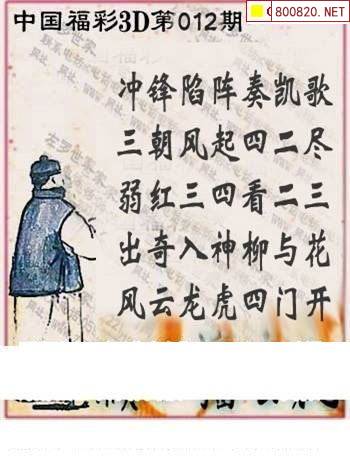 中国福彩3D第012期
800820.NET
冲锋陷阵奏凯歌
三朝风起四二尽
弱红三四看二三
出奇入神柳与花
风云龙虎四门开